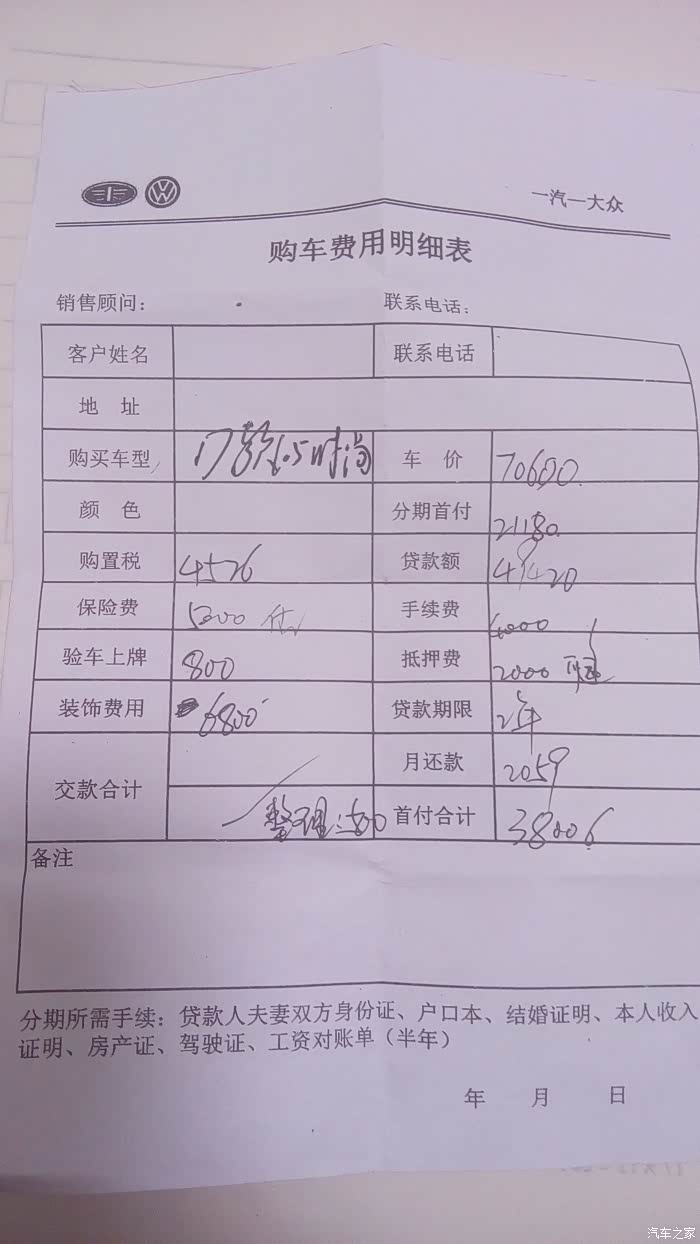 一汽一大众
购车费用明细表
销售顾问： 联系电话：
客户姓名 联系电话
地 址
购买车型 17款1.5时尚 车 价 70600
颜 色 分期首付 21180
购置税 4526 贷款额 49420
保险费 5200 手续费
验车上牌 800 抵押费 2000
装饰费用 6800 贷款期限 2年
交款合计 月还款 2059
整理 首付合计 38006
备注
分期所需手续：贷款人夫妻双方身份证、户口本、结婚证明、本人收入
证明、房产证、驾驶证、工资对账单（半年）
年 月 日
汽车之家